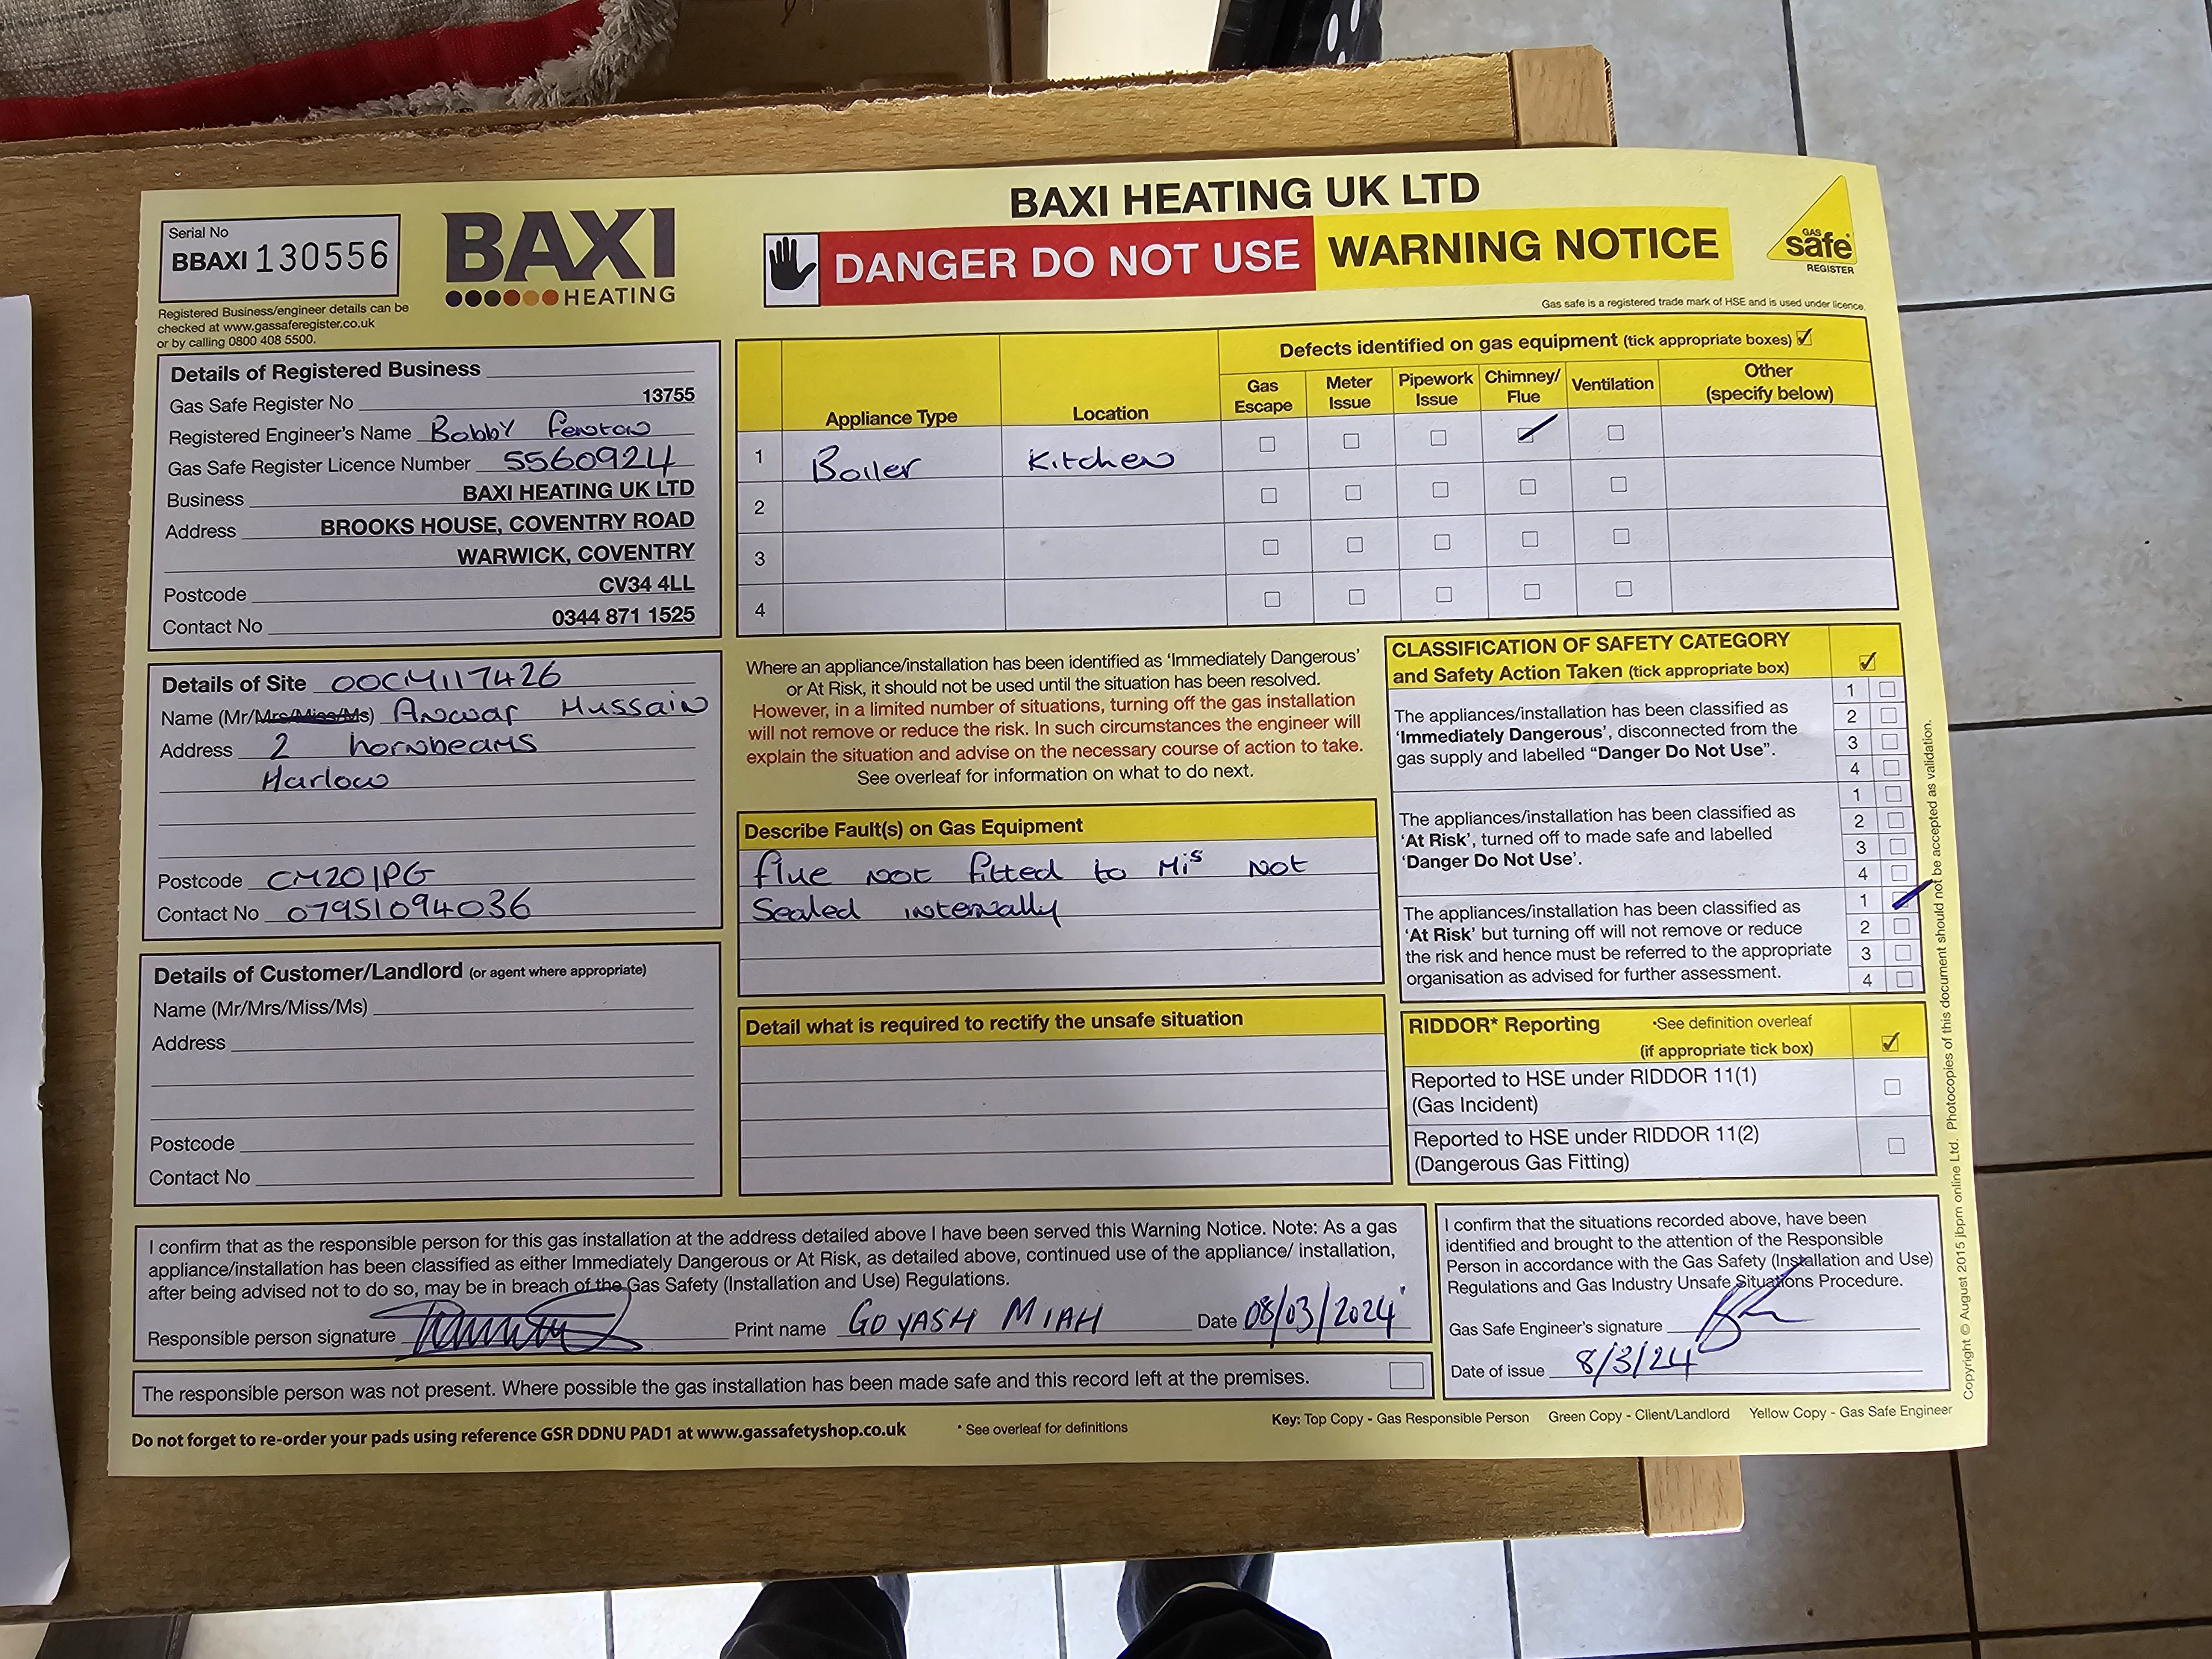 BAXI HEATING UK LTD
Serial No
BBAXI 130556
BAXI
HEATING
DANGER DO NOT USE WARNING NOTICE
GAS
safe
REGISTER
Registered Business/engineer details can be
checked at www.gassaferegister.co.uk
or by calling 0800 408 5500.
Gas safe is a registered trade mark of HSE and is used under licence.
Details of Registered Business
Gas Safe Register No 13755
Registered Engineer's Name Bobby
Gas Safe Register Licence Number 5560924
Business BAXI HEATING UK LTD
Address BROOKS HOUSE, COVENTRY ROAD
WARWICK, COVENTRY
Postcode CV34 4LL
Contact No 0344 871 1525
Details of Site 00CM1117426
Name (Mr/Mrs/Miss/Ms) Anwar Hussain
Address 2 hornbeams
Harlow
Postcode CM201PG
Contact No 07951094036
Details of Customer/Landlord (or agent where appropriate)
Name (Mr/Mrs/Miss/Ms)
Address
Postcode
Contact No
Appliance Type
Location
Defects identified on gas equipment (tick appropriate boxes) ✓
Gas Escape
Meter Issue
Pipework Issue
Chimney/ Flue
Ventilation
Other (specify below)
1 Boiler Kitchen
2
3
4
Where an appliance/installation has been identified as 'Immediately Dangerous'
or At Risk, it should not be used until the situation has been resolved.
However, in a limited number of situations, turning off the gas installation
will not remove or reduce the risk. In such circumstances the engineer will
explain the situation and advise on the necessary course of action to take.
See overleaf for information on what to do next.
Describe Fault(s) on Gas Equipment
flue not fitted to Mi's Not
Sealed internally
Detail what is required to rectify the unsafe situation
CLASSIFICATION OF SAFETY CATEGORY
and Safety Action Taken (tick appropriate box) ✓
The appliances/installation has been classified as
'Immediately Dangerous', disconnected from the
gas supply and labelled "Danger Do Not Use".
1
2
3
4
The appliances/installation has been classified as
'At Risk', turned off to made safe and labelled
'Danger Do Not Use'.
1
2
3
4
The appliances/installation has been classified as
'At Risk' but turning off will not remove or reduce
the risk and hence must be referred to the appropriate
organisation as advised for further assessment.
1
2
3
4
RIDDOR* Reporting
*See definition overleaf
(if appropriate tick box) ✓
Reported to HSE under RIDDOR 11(1)
(Gas Incident)
Reported to HSE under RIDDOR 11(2)
(Dangerous Gas Fitting)
I confirm that as the responsible person for this gas installation at the address detailed above I have been served this Warning Notice. Note: As a gas
appliance/installation has been classified as either Immediately Dangerous or At Risk, as detailed above, continued use of the appliance/ installation,
after being advised not to do so, may be in breach of the Gas Safety (Installation and Use) Regulations.
Responsible person signature
Print name GOYASH MIAH
Date 08/03/2024
The responsible person was not present. Where possible the gas installation has been made safe and this record left at the premises.
I confirm that the situations recorded above, have been
identified and brought to the attention of the Responsible
Person in accordance with the Gas Safety (Installation and Use)
Regulations and Gas Industry Unsafe Situations Procedure.
Gas Safe Engineer's signature
Date of issue 8/3/24
Do not forget to re-order your pads using reference GSR DDNU PAD1 at www.gassafetyshop.co.uk
* See overleaf for definitions
Key: Top Copy - Gas Responsible Person Green Copy - Client/Landlord Yellow Copy - Gas Safe Engineer
Copyright © August 2015 jbpm online Ltd. Photocopies of this document should not be accepted as validation.